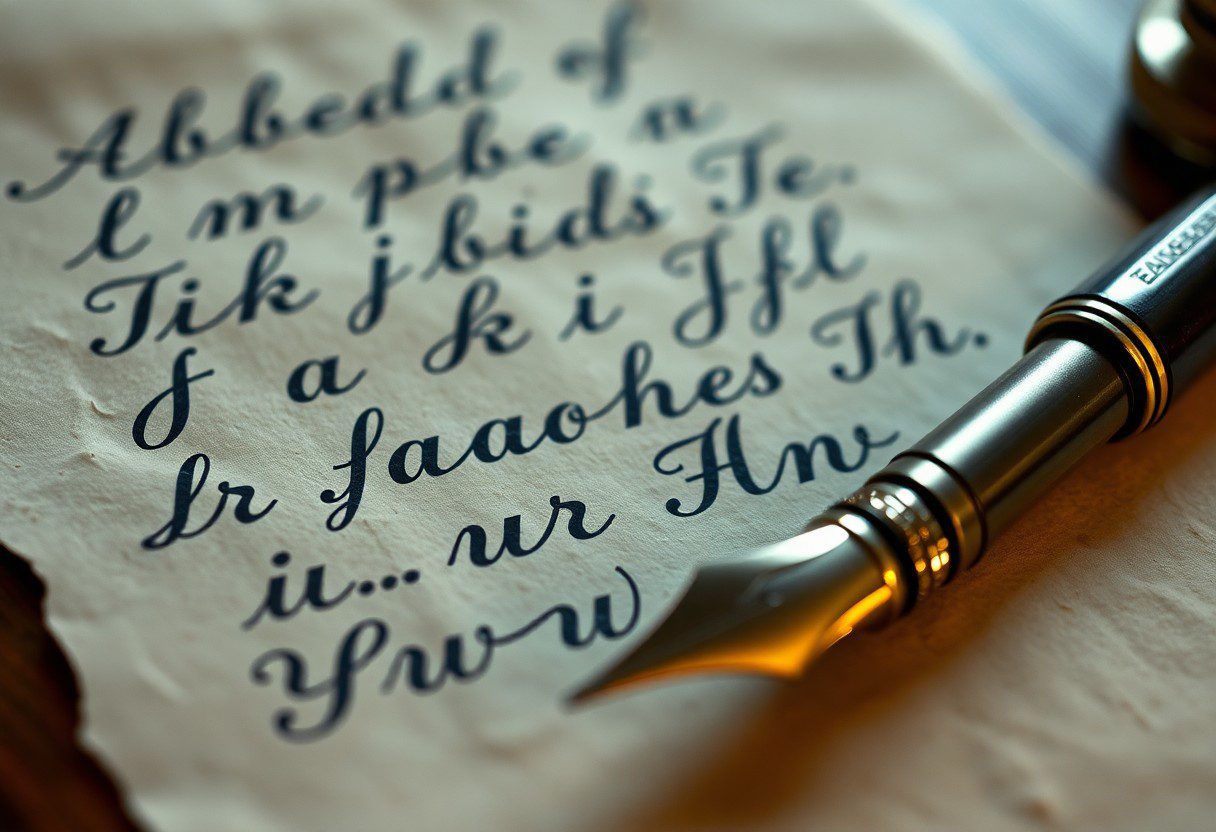 Abbedd of
l m pbe n
Tik jbids Te.
f a k i Ffl
Lr faaohes Th.
iı... ur Hnv
Yww